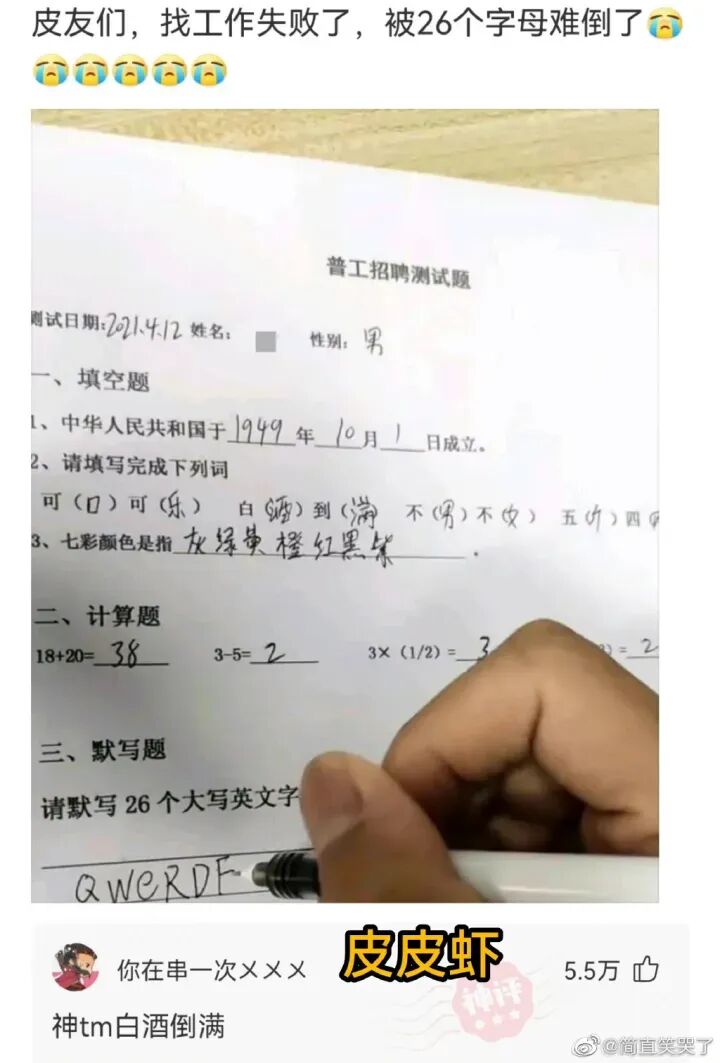 皮友们，找工作失败了，被26个字母难倒了😭
😭😭😭😭😭
普工招聘测试题
测试日期:2021.4.12 姓名: 性别: 男
一、填空题
1、中华人民共和国于1949年10月1日成立。
2、请填写完成下列词
可（口）可（乐） 白（酒）到（满） 不（男）不（女） 五（个）四（
3、七彩颜色是指灰绿黄橙红黑紫.
二、计算题
18+20=38 3-5=2 3×（1/2）=3 )=2
三、默写题
请默写26个大写英文字
QWeRDF
你在串一次メメメ 皮皮虾 5.5万
神评
神tm白酒倒满
@简直笑哭了